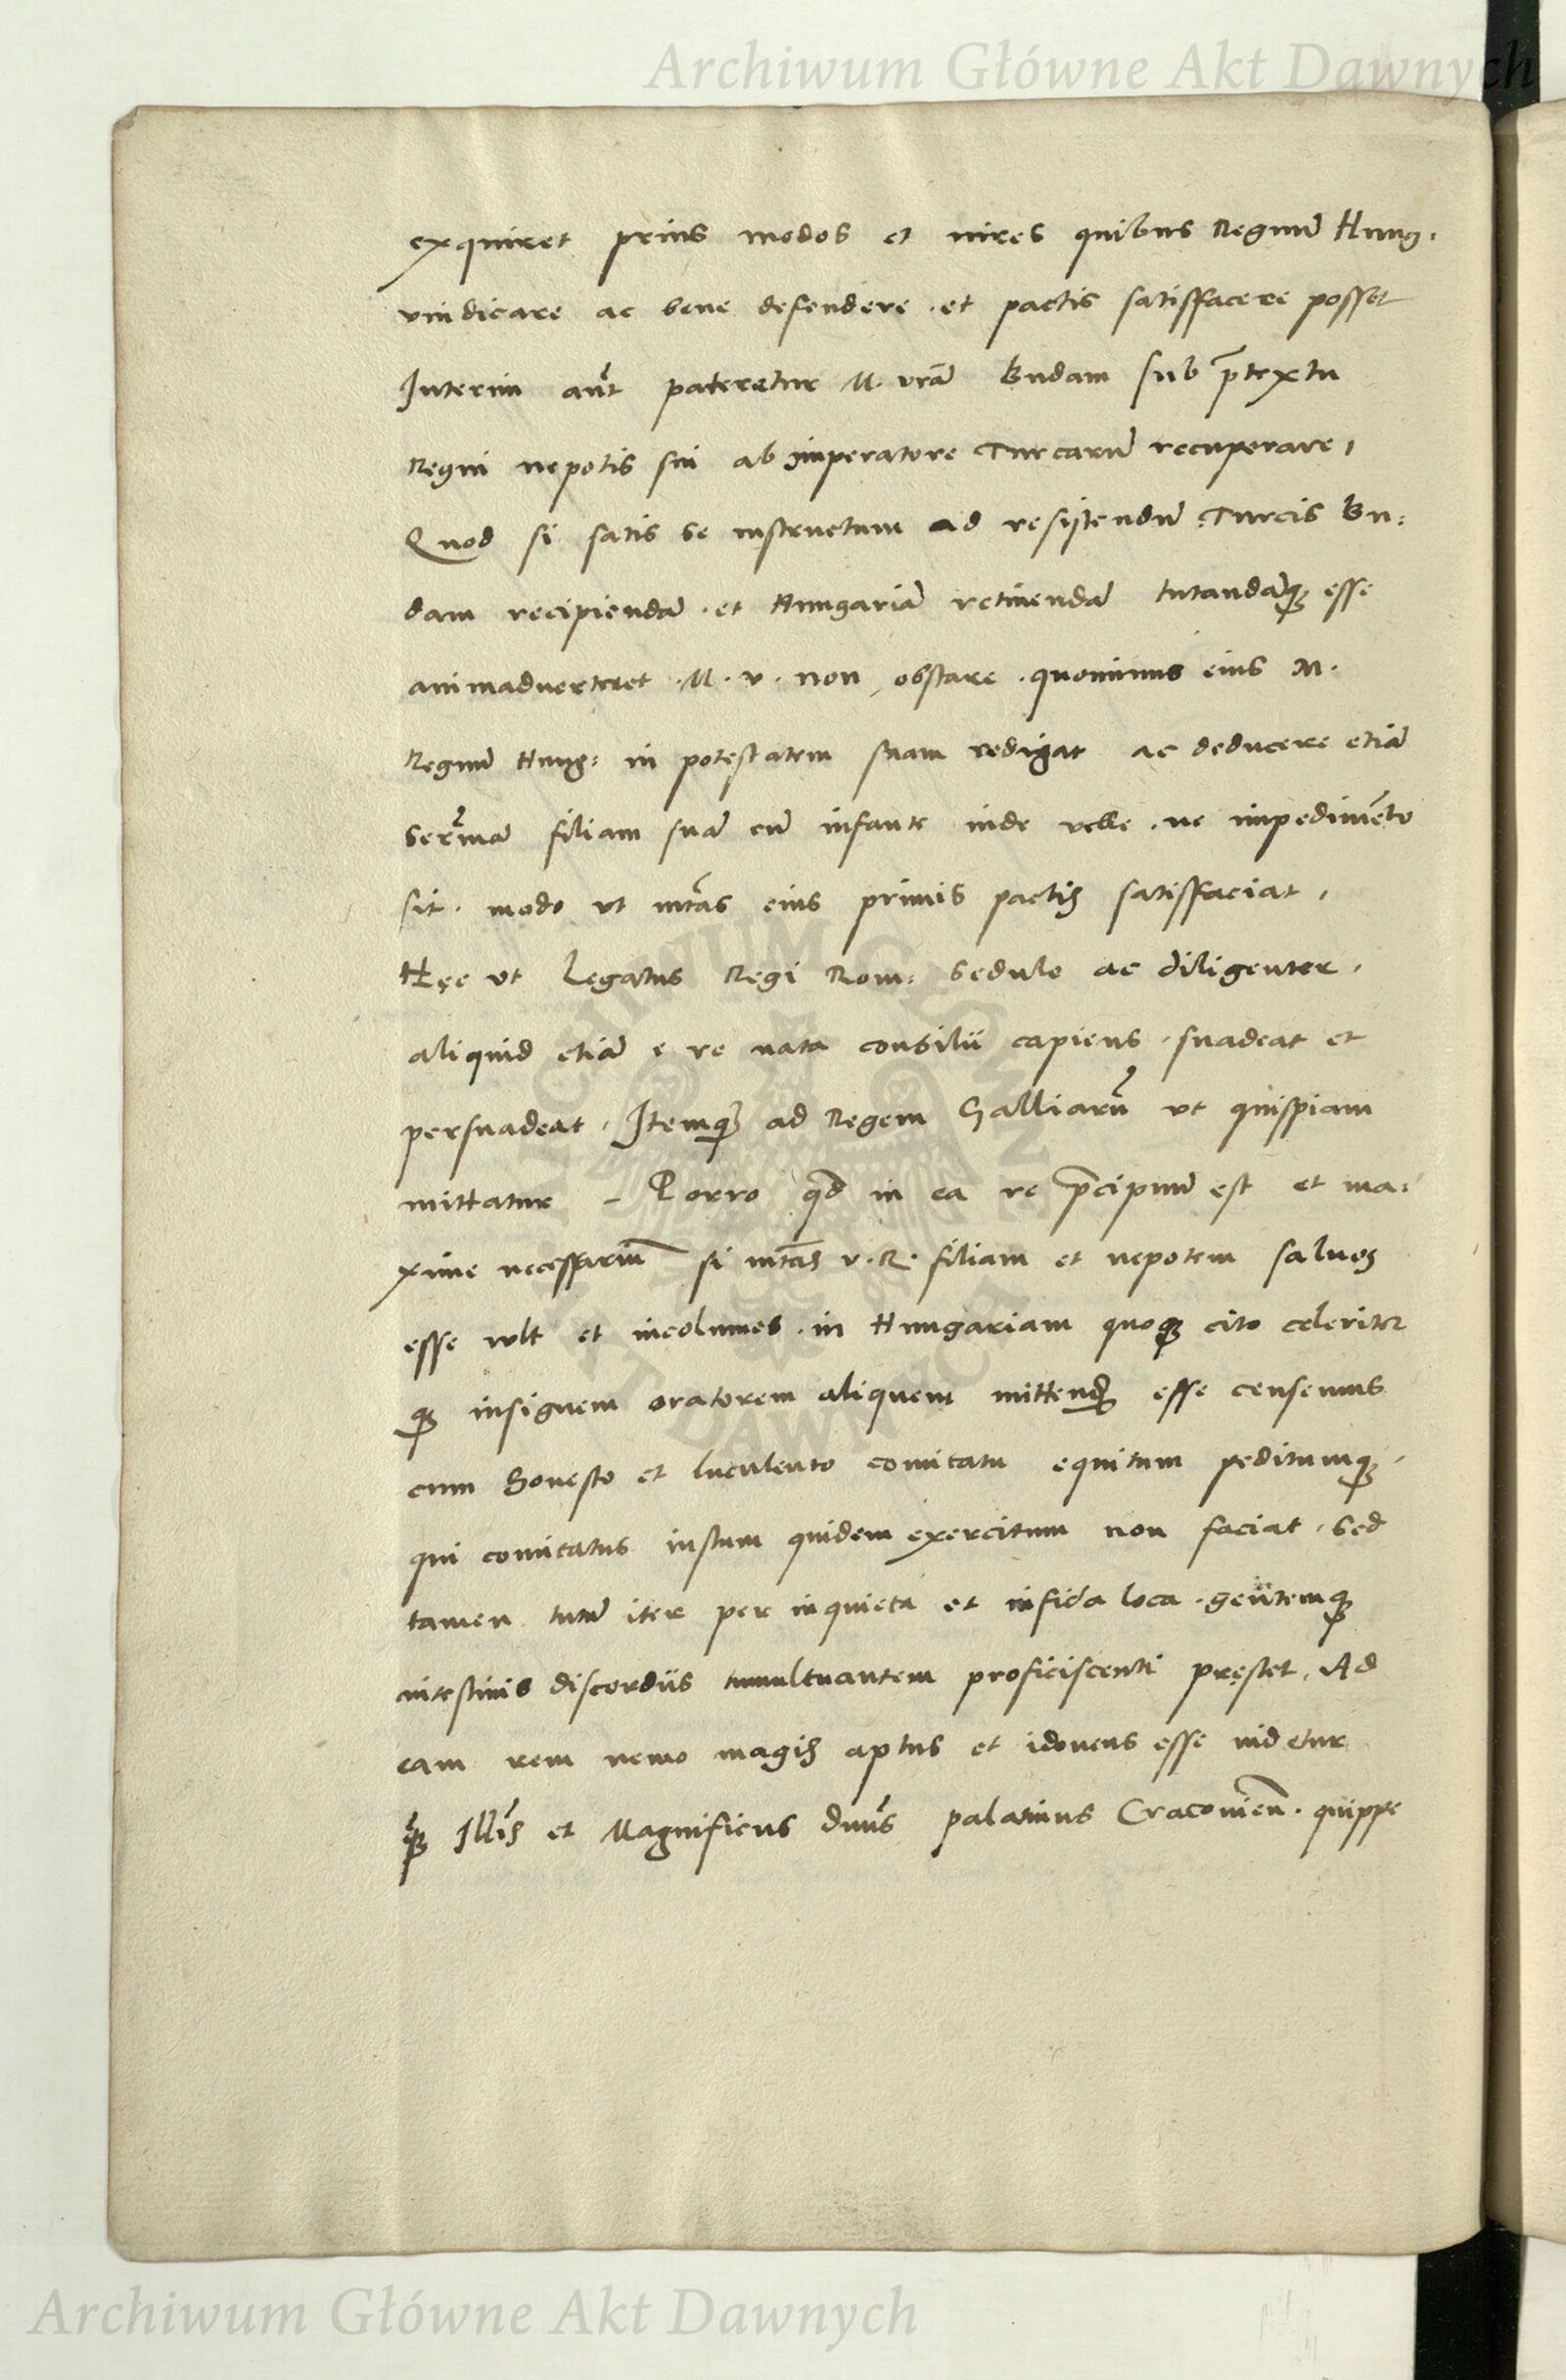 Archiwum Główne Akt Dawnych
exquiret prius modos et uires quibus Regnũ Hung.
vindicare ac bene defendere . et pactis satisfacere posset
Interim aũt pateretur M. vrã Budam sub p̃textu
Regni nepotis sui ab imperatore Turcarũ recuperare,
Quod si satis se instructum ad resistendũ Turcis Bu:
dam recipiendã . et Hungariã retinendã tutandãq; esse
animaduerteret . M . v . non obstare . quominus eius M .
Regnũ Hung: in potestatem suam redigat ac deducere etiã
Serm̃ã filiam suã cũ infante inde velle . ne impedimẽto
sit . modo ut mt̃as eius primis pactis satisfaciat ,
Hęc vt Legatus Regi Rom: sedulo ac diligenter ,
aliquid etiã e re nata consilii capiens , suadeat et
persuadeat . Itemq; ad Regem Galliarũ vt quispiam
mittatur – Porro qd̃ in ea re p̃cipuũ est et ma:
xime necessariũ si mt̃as v . R . filiam et nepotem saluos
esse vult et incolumes . in Hungariam quoq; cito celeriter
q; insignem oratorem aliquem mittend̃ esse censemus
cum honesto et luculento comitatu equitum peditumq; ,
qui comitatus iustum quidem exercitum non faciat , sed
tamen tutũ iter per inquieta et infida loca . gentemq;
intestinis discordiis tumultuantem proficiscenti pręstet . Ad
eam rem nemo magis aptus et idoneus esse uidetur
q̃; Ill̃is et Magnificus dnũs palatinus Cracouien̄ . quippe
Archiwum Główne Akt Dawnych